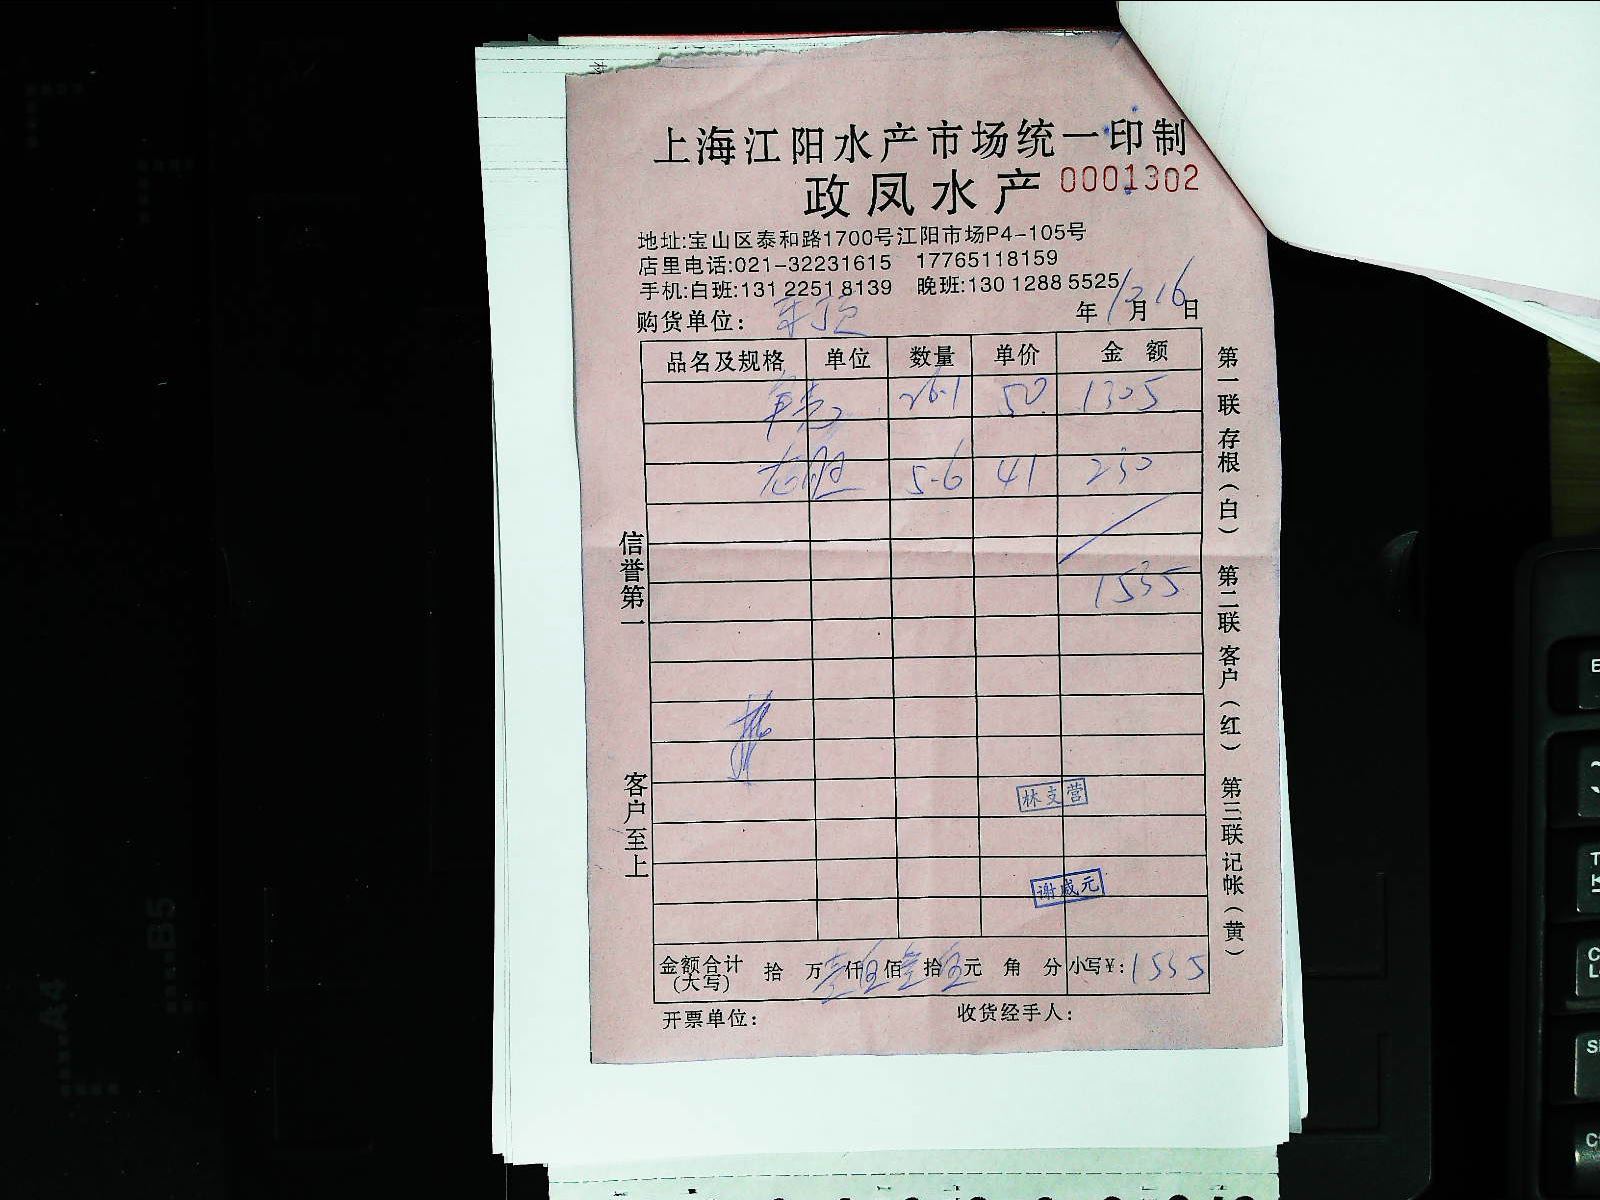 上海江阳水产市场统一印制
政凤水产 0001302
地址:宝山区泰和路1700号江阳市场P4-105号
店里电话:021-32231615 17765118159
手机:白班:131 2251 8139 晚班:130 1288 5525
购货单位: 年 12 月 16 日
品名及规格 单位 数量 单价 金额
26.1 50 1305
5.6 41 230
1535
信誉第一
客户至上
林支营
谢咸元
金额合计(大写) 拾 万 壹 仟 伍 佰 叁 拾 伍 元 角 分 小写¥: 1535
开票单位: 收货经手人:
第一联 存根(白) 第二联 客户(红) 第三联 记帐(黄)
B5
A4